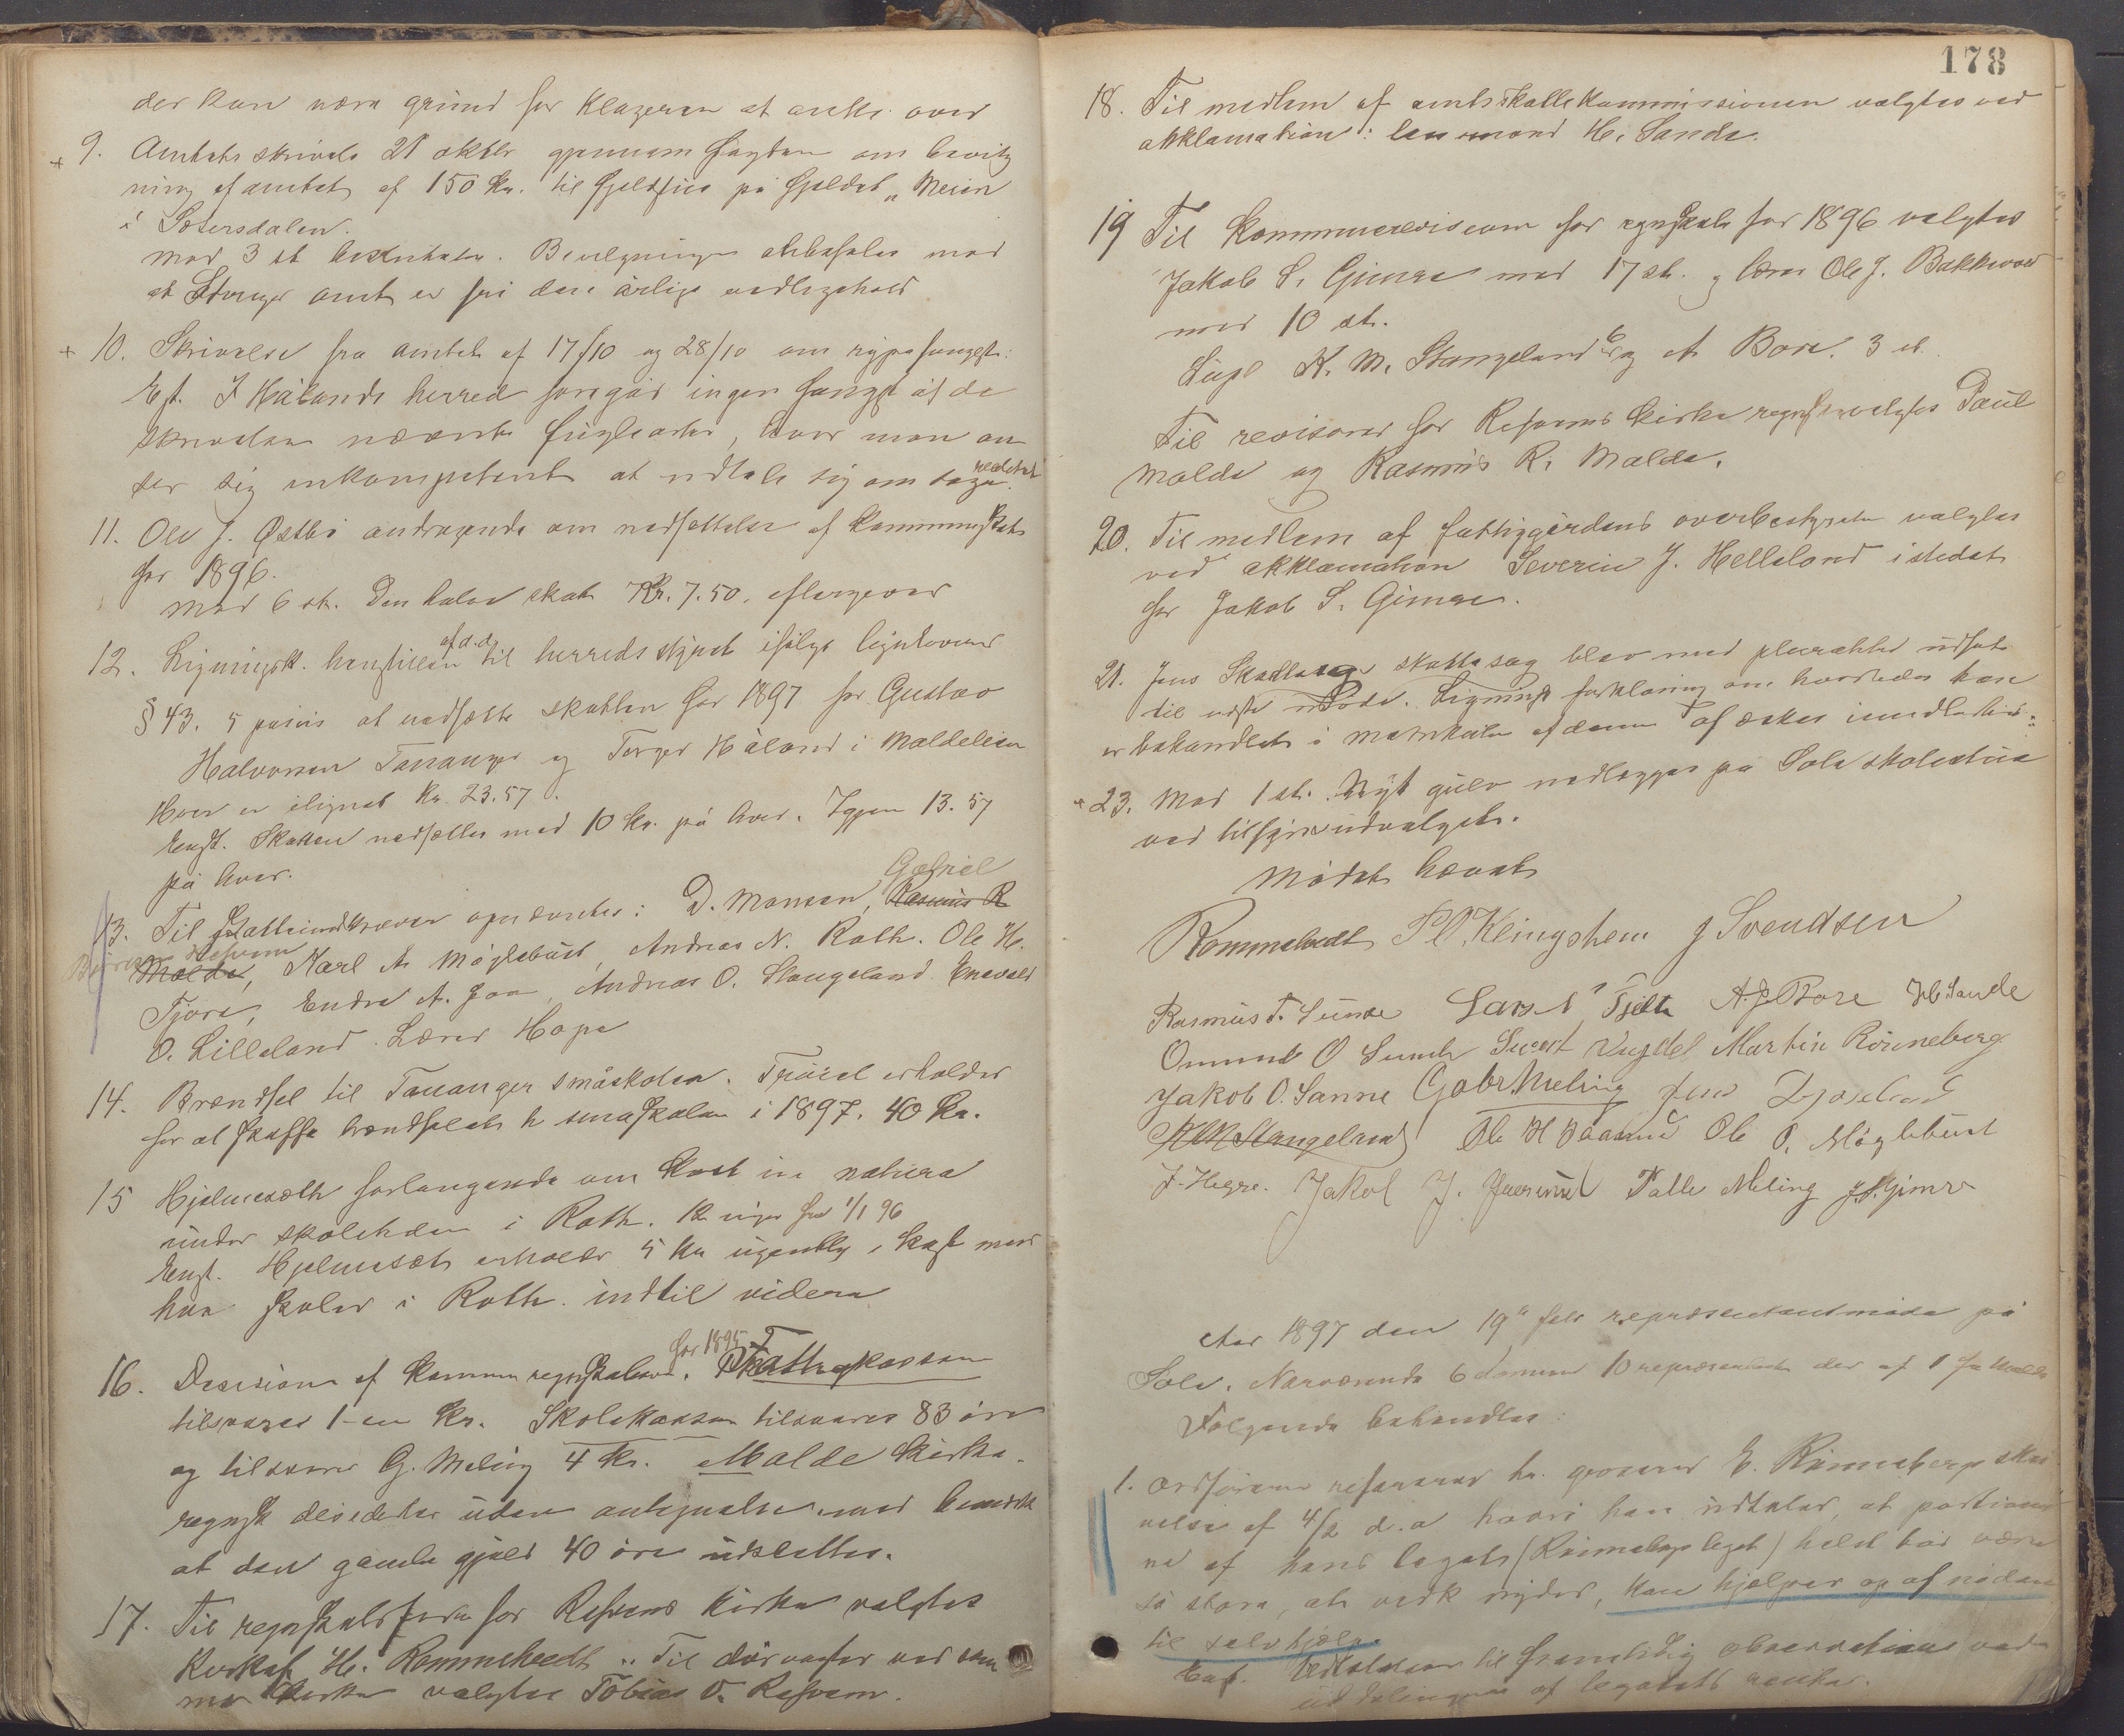 der kan være grund for klageren at anke over
+ 9. Amtets skrivelse 21 oktbr gjennem fogden om bevilg
ning af amtet af 150 Kr. til fjeldstue på fjeldet "Meien
i Sætersdalen.
mod 3 st besluttedes. Bevilgningen anbefales mod
at Stavanger amt er fri den årlige vedligehold
+ 10. Skrivelse fra amtet af 17/10 og 28/10 om rypefangst:
Egt. I Hålands herred foregår ingen fangst af de
skrivelsen nævnte fuglearter, hvor man an
ser sig inkompetent at udtale sig om sagen realitet
11. Ole J. Østbø andragende om nedsættelse af kommuneskat
for 1896.
Mod 6 st. Den halve skat Kr. 7.50. eftergives
12. Ligningsk. henstillen af d.d. til herredsstyret ifølge lignloven
§ 43. 5 passus at nedsætte skatten for 1897 for Gustav
Halvorsen Tananger og Torger Håland i Maldelien
Hver er ilignet Kr. 23.57.
Enst. Skatten nedsættes med 10 Kr. på hver. Igjen 13.57
på hver.
13. Til skatteindkrever opnævntes: D. Monsen, Gabriel Rasmus R
Malde, Karl A. Møglebust, Andreas N. Roth. Ole H.
Tjora, Endre A. Joa, Andreas O. Stangeland Enevald
O. Lilleland. Lærer Hope
14. Brændsel til Tananger småskolen. erholder
for at skaffe brændsel til småskolen i 1897. 40 Kr.
15 Hjelmesæth forlangende om kost in natura
under skoleholden i Roth. 12 uger fra 1/1 96
Enst. Hjelmesæt erholder 5 Kr ugentlig i kost mens
han skoler i Roth. indtil videre
16. Decision af kommuneregnskaberne for 1895. Fattigkassen
tilsvares 1-en Kr. Skolekassen tilsvares 83 øre
og tilsvarer G. Meling 4 Kr. Malde kirke.
regnsk desideres uden antegnelse med bemærk
at den gamle gjæld 40 øre udslettes.
17. Til regnskabsfører for Refsnes kirke valgtes
Kirkesk. H. Rommetvedt. Til dørvogter ved sam
me kirke valgtes Tobias O. Refsnes.
178
18. Til medlem af amtsskattekommissionen valgtes ved
akklamation: lensmand H. Sande.
19 Til kommunerevisorer for regnskab for 1896 valgtes
Jakob S. Gimre med 17 st. og lærer Ole J. Bakkevold
med 10 st.
Supl K. M. Stangeland 6 og A Bore. 3 st.
Til revisorer for Refsnes kirke regnsk valgtes Paul
Malde og Rasmus R. Malde.
20. Til medlem af fattiggårdens overbestyrelse valgtes
ved akklamation Severin J. Helleland istedet
for Jakob S. Gimre.
21. Jens skattesag blev med pluralitet udsat
til næste møde. Lignings forklaring om hvorledes han
er behandlet i matrikulen af denne af æskes imidlertid.
+ 23. Mod 1 st. Nyt gulv nedlægges på Sole skolestue
ved tilsynsudvalget.
Mødet hævet
Rommetvedt P. O. Kleingshem J Svendsen
Rasmus T. Sunde Lars N Tjelta A. J. Bore H Sande
Ommund O Sunde Sivert Vigdel Martin Rønneberg
Jakob O. Sømme Gabr Meling Jens
K M Stangeland Ole H Ole O. Møglebust
J. Hegre. Jakob J. Talle Meling J. S. Gimre
Aar 1897 den 19de febr repræsentantmøde på
Sole. Nærværende 6 formæn 10 repræsentant der af 1 for
Følgende behandles:
1. Ordføreren refererer hr. grosserer E. Rønneberg skri
velse af 4/2 d.a hvori han udtaler, at portioner
ne af hans legat (Rønnebergs legat) helst bør være
så store, at vedk nyder, kan hjælpes op af nøden
til selvhjælp.
Enst. Vedtoges til fremtidig observation ved
uddelingen af legatets renter.